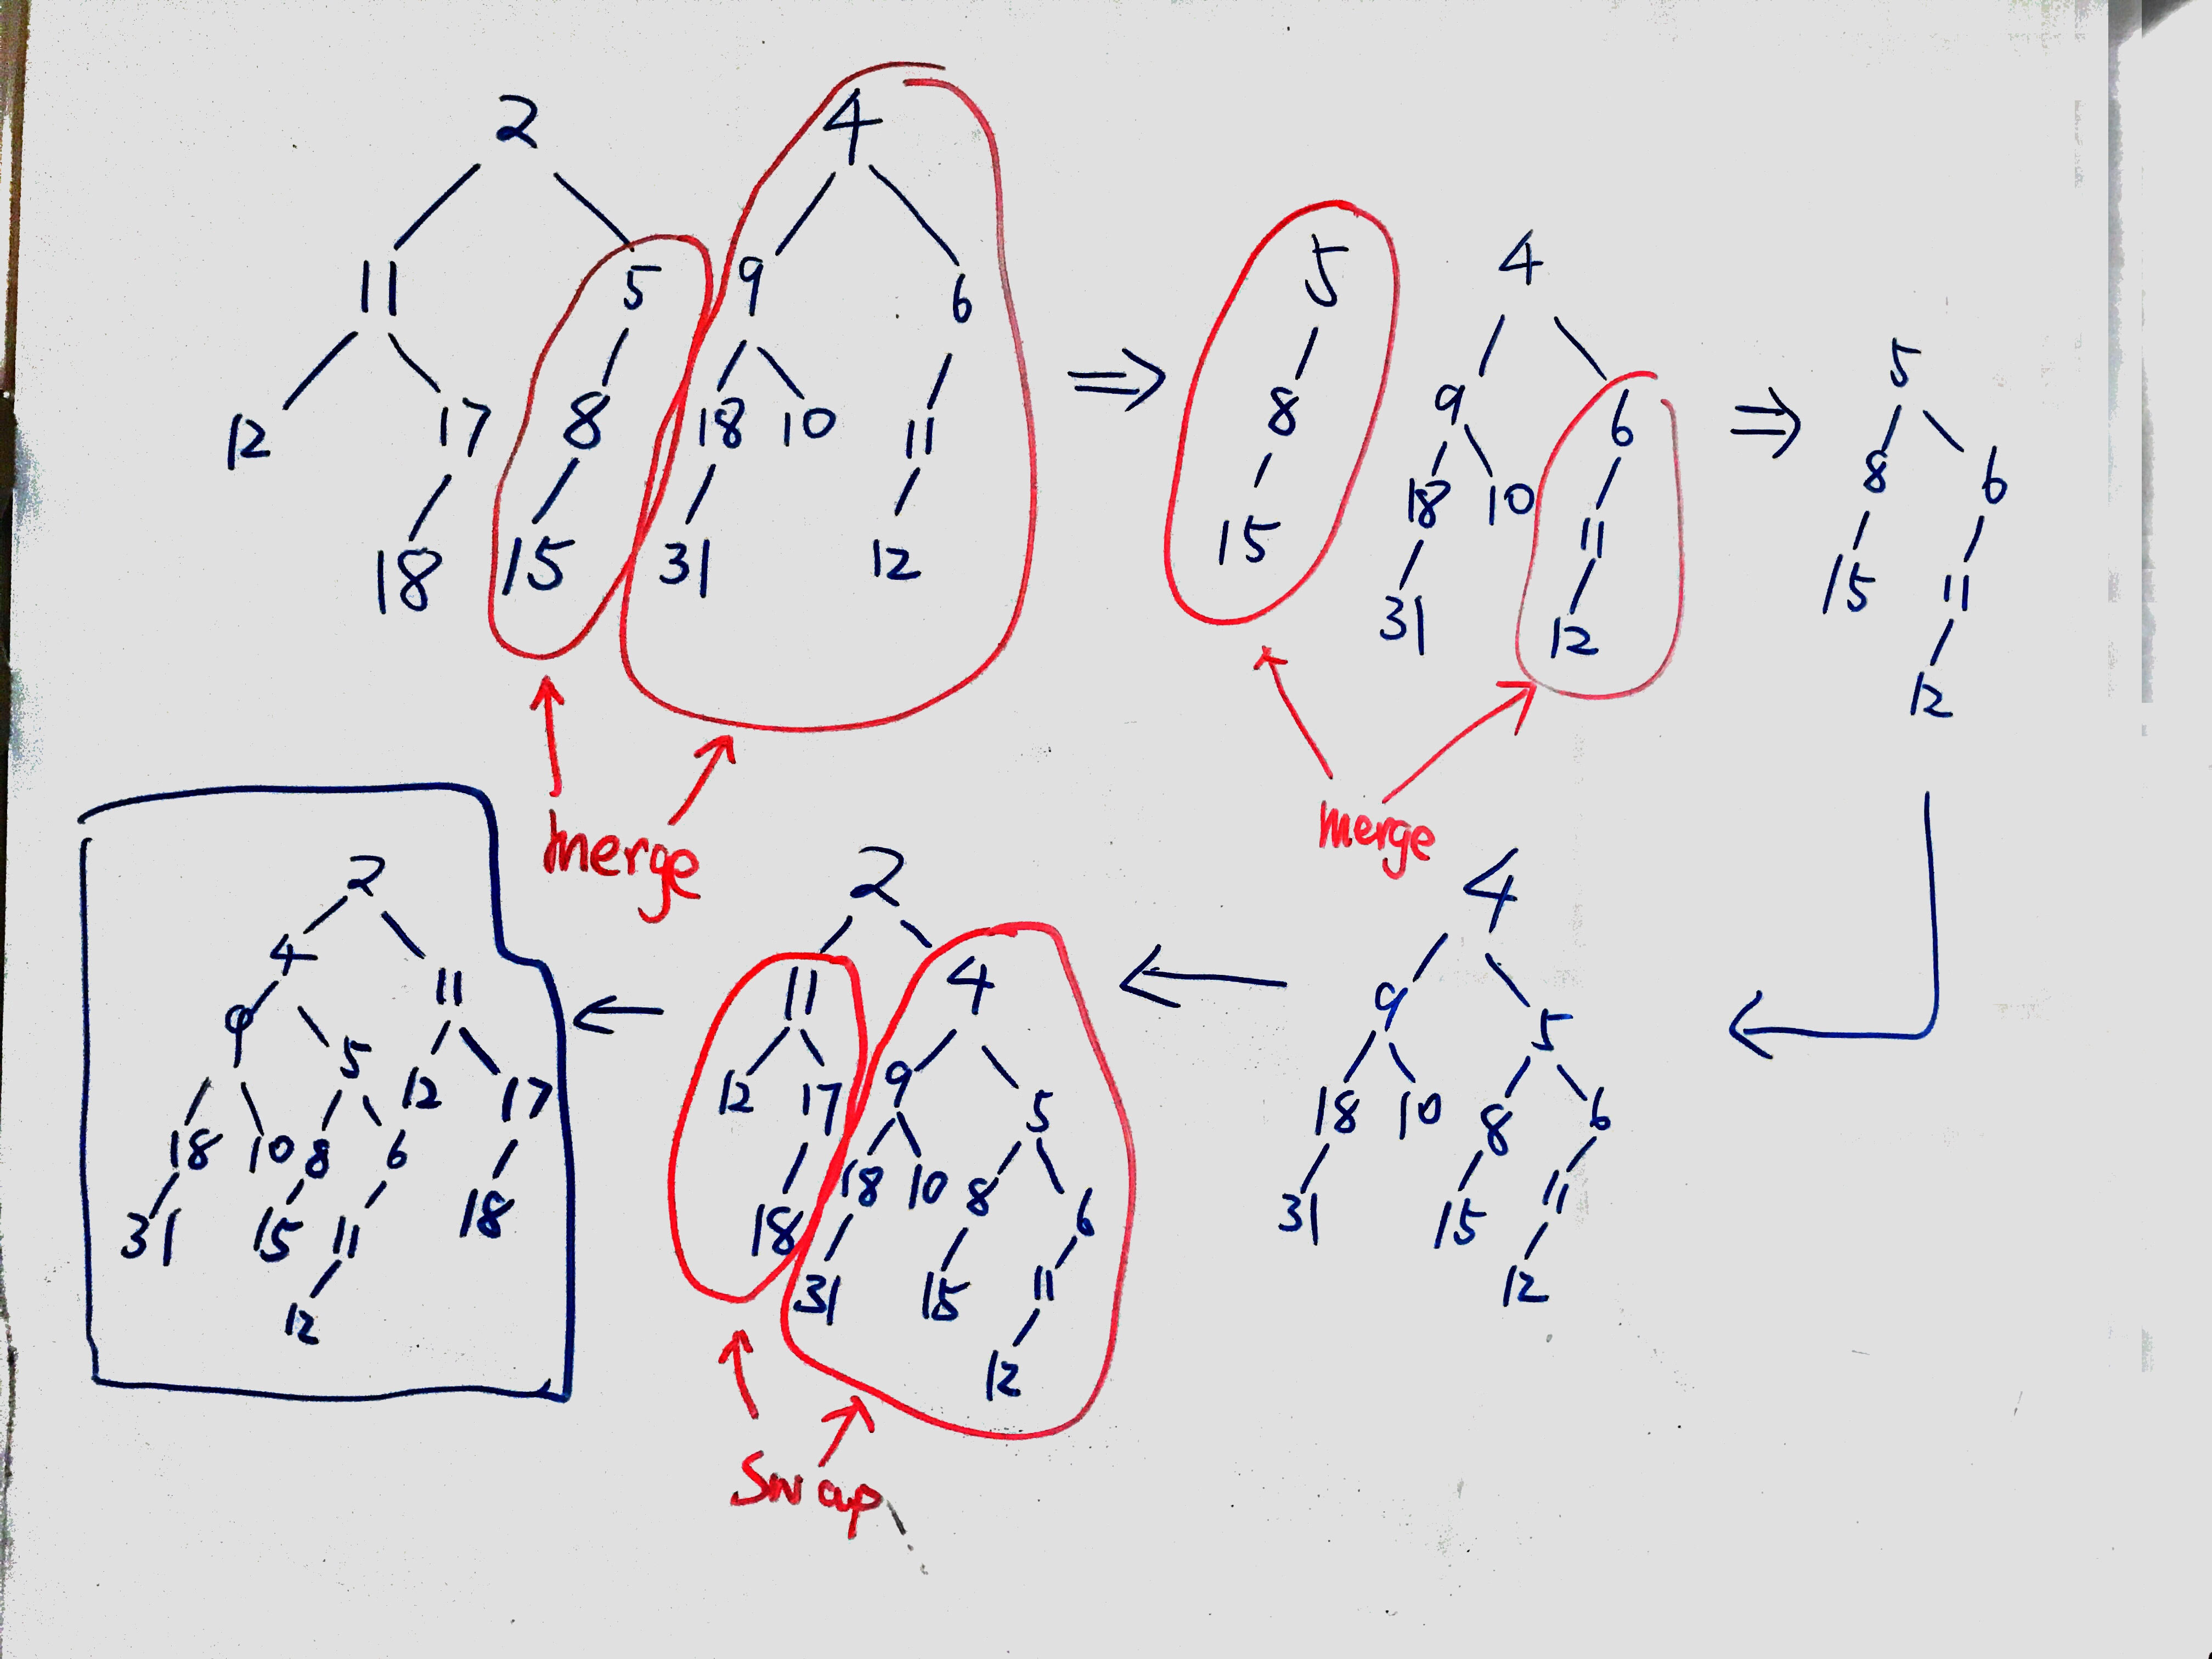 2
11 5
12 17 8
18 15
4
9 6
18 10 11
31 12
merge
5
8
15
4
9 6
18 10 11
31 12
merge
5
8 6
15 11
12
4
9 5
18 10 8 6
31 15 11
12
2
11 4
12 17 9 5
18 18 10 8 6
31 15 11
12
Swap
2
4 11
9 5 12 17
18 10 8 6 18
31 15 11
12